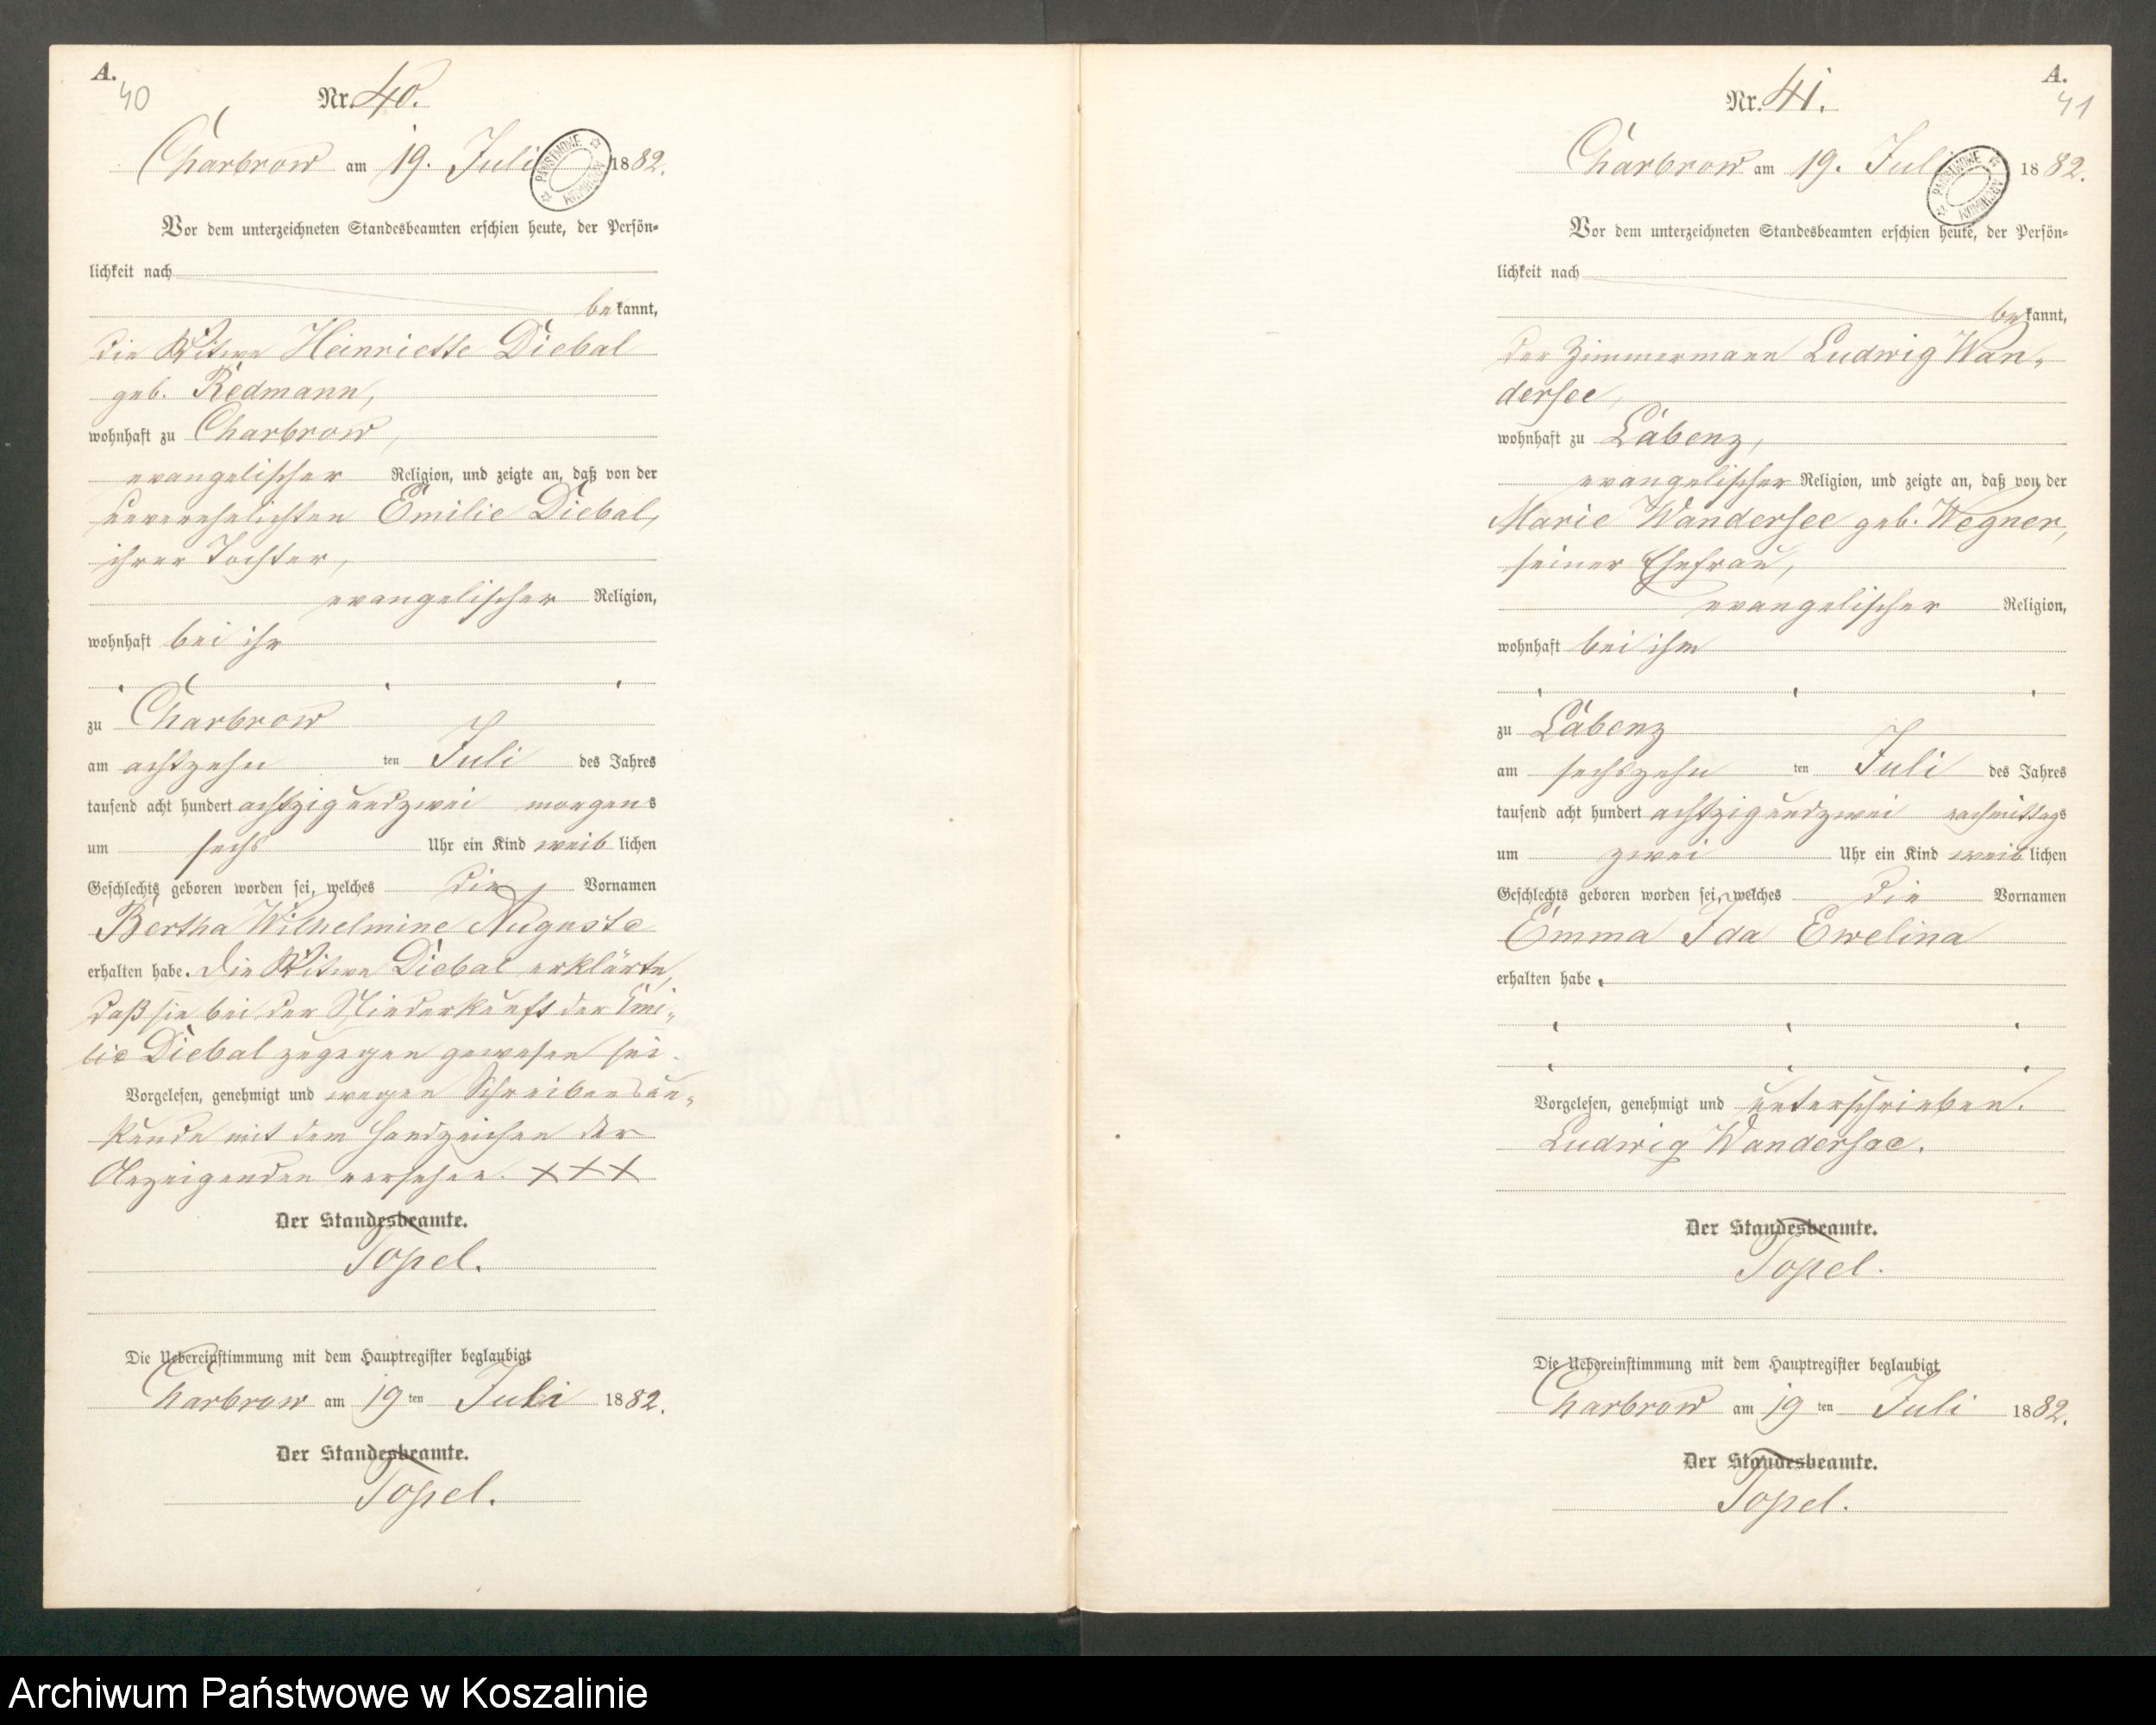 A.
40
Nr. 40.
Charbrow am 19. Juli 1882.
PAŃSTWOWE
ARCHIWUM
Vor dem unterzeichneten Standesbeamten erschien heute, der Persön-
lichkeit nach
bekannt,
die Witwe Henriette Diebal
geb. Redmann,
wohnhaft zu Charbrow,
evangelischer Religion, und zeigte an, daß von der
unverehelichten Emilie Diebal,
ihrer Tochter,
evangelischer Religion,
wohnhaft bei ihr
zu Charbrow
am achtzehn ten Juli des Jahres
tausend acht hundert achtzig und zwei morgens
um sechs Uhr ein Kind weiblichen
Geschlechts geboren worden sei, welches die Vornamen
Bertha Wilhelmine Auguste
erhalten habe. Die Witwe Diebal erklärte,
daß sie bei der Niederkunft der Emi-
lie Diebal zugegen gewesen sei.
Vorgelesen, genehmigt und wegen Schreibensun-
kunde mit dem Handzeichen der
Anzeigenden versehen. +++
Der Standesbeamte.
Topel.
Die Uebereinstimmung mit dem Hauptregister beglaubigt
Charbrow am 19 ten Juli 1882.
Der Standesbeamte.
Topel.
A.
41
Nr. 41.
Charbrow am 19. Juli 1882.
PAŃSTWOWE
ARCHIWUM
Vor dem unterzeichneten Standesbeamten erschien heute, der Persön-
lichkeit nach
bekannt,
der Zimmermann Ludwig Wan-
dersee,
wohnhaft zu Labenz,
evangelischer Religion, und zeigte an, daß von der
Marie Wandersee geb. Wegner,
seiner Ehefrau,
evangelischer Religion,
wohnhaft bei ihm
zu Labenz
am sechszehn ten Juli des Jahres
tausend acht hundert achtzig und zwei nachmittags
um zwei Uhr ein Kind weiblichen
Geschlechts geboren worden sei, welches die Vornamen
Emma Ida Ewelina
erhalten habe.
Vorgelesen, genehmigt und unterschrieben.
Ludwig Wandersee.
Der Standesbeamte.
Topel.
Die Uebereinstimmung mit dem Hauptregister beglaubigt
Charbrow am 19 ten Juli 1882.
Der Standesbeamte.
Topel.
Archiwum Państwowe w Koszalinie